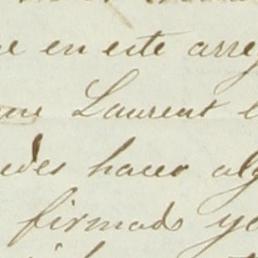 en este arre
Laurent
des hacer alg
firmado